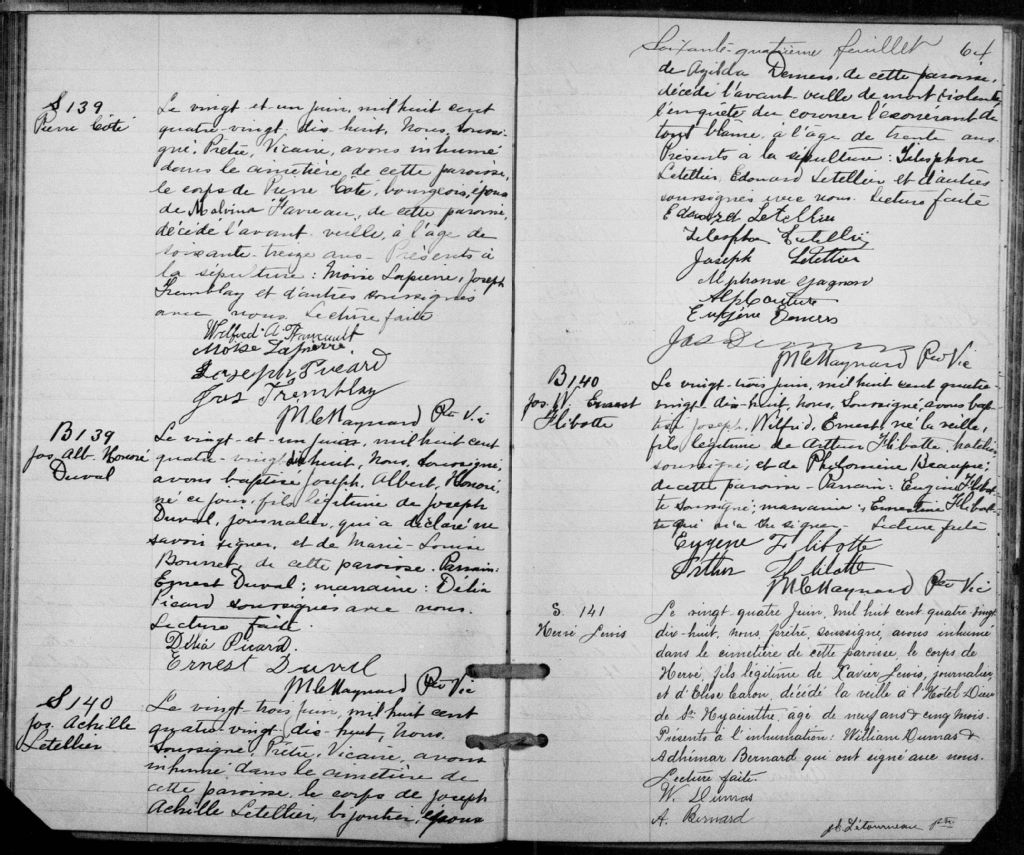 S 139
Pierre Côté
Le vingt et un juin, mil huit cent
quatre-vingt, dix-huit, Nous, soussi-
gné, Prêtre, Vicaire, avons inhumé
dans le cimetière de cette paroisse,
le corps de Pierre Côté, bourgeois, époux
de Malvina Favreau, de cette paroisse,
décédé l'avant-veille, à l'âge de
soixante-treize ans. Présents à
la sépulture: Moïse Lapierre, Joseph
Tremblay et d'autres soussignés
avec nous. Lecture faite
Wilfrid A.
Moïse Lapierre
Joseph Picard
Jos Tremblay
M C Maynard Ptre Vic
B 139
Jos. Alb. Honoré
Duval
Le vingt-et-un juin, mil huit cent
quatre-vingt dix huit, Nous, soussigné,
avons baptisé Joseph, Albert, Honoré,
né ce jour, fils légitime de Joseph
Duval, journalier, qui a déclaré ne
savoir signer, et de Marie-Louise
Bonnet, de cette paroisse. Parrain:
Ernest Duval; marraine: Délia
Picard soussignés avec nous.
Lecture faite.
Délia Picard.
Ernest Duval
M C Maynard Ptre Vic
S 140
Jos. Achille
Letellier
Le vingt trois juin, mil huit cent
quatre-vingt dix-huit, Nous,
soussigné Prêtre, Vicaire, avons
inhumé dans le cimetière de
cette paroisse le corps de Joseph
Achille Letellier, bijoutier, époux
Soixante-quatrième feuillet 64
de Azilda Demers, de cette paroisse,
décédé l'avant veille de mort violente,
l'enquête du coroner l'exonérant de
tout blâme, à l'âge de trente ans.
Présents à la sépulture: Télesphore
Letellier, Edouard Letellier et d'autres
soussignés avec nous. Lecture faite
Edouard Letellier
Telesphore Letellier
Joseph Letellier
Alphonse Gagnon
Alp Couture
Eugène Demers
Jos Demers
M C Maynard Ptre Vic
B 140
Jos. W. Ernest
Flibotte
Le vingt-trois juin, mil huit cent quatre-
vingt-dix-huit, Nous, Soussigné, avons bap-
tisé Joseph, Wilfrid, Ernest né la veille,
fils légitime de Arthur Flibotte, hotelier
soussigné, et de Philomène Beaupré,
de cette paroisse. Parrain: Eugène Flibot-
te soussigné; marraine, Ernestine Flibot-
te qui n'a su signer. Lecture faite
Eugene Flibotte
Arthur Flibotte
M C Maynard Ptre Vic
S. 141
Hervé Lewis
Le vingt-quatre Juin, Mil huit cent quatre-vingt
dix-huit, nous, prêtre, soussigné, avons inhumé
dans le cimetière de cette paroisse, le corps de
Hervé, fils légitime de Xavier Lewis, journalier,
et d'Elise Caron, décédé la veille à l'Hôtel Dieu
de St Hyacinthe, âgé de neuf ans & cinq mois.
Présents à l'inhumation: William Dumas &
Adhémar Bernard qui ont signé avec nous.
Lecture faite.
W. Dumas
A. Bernard
J. E. Létourneau ptre